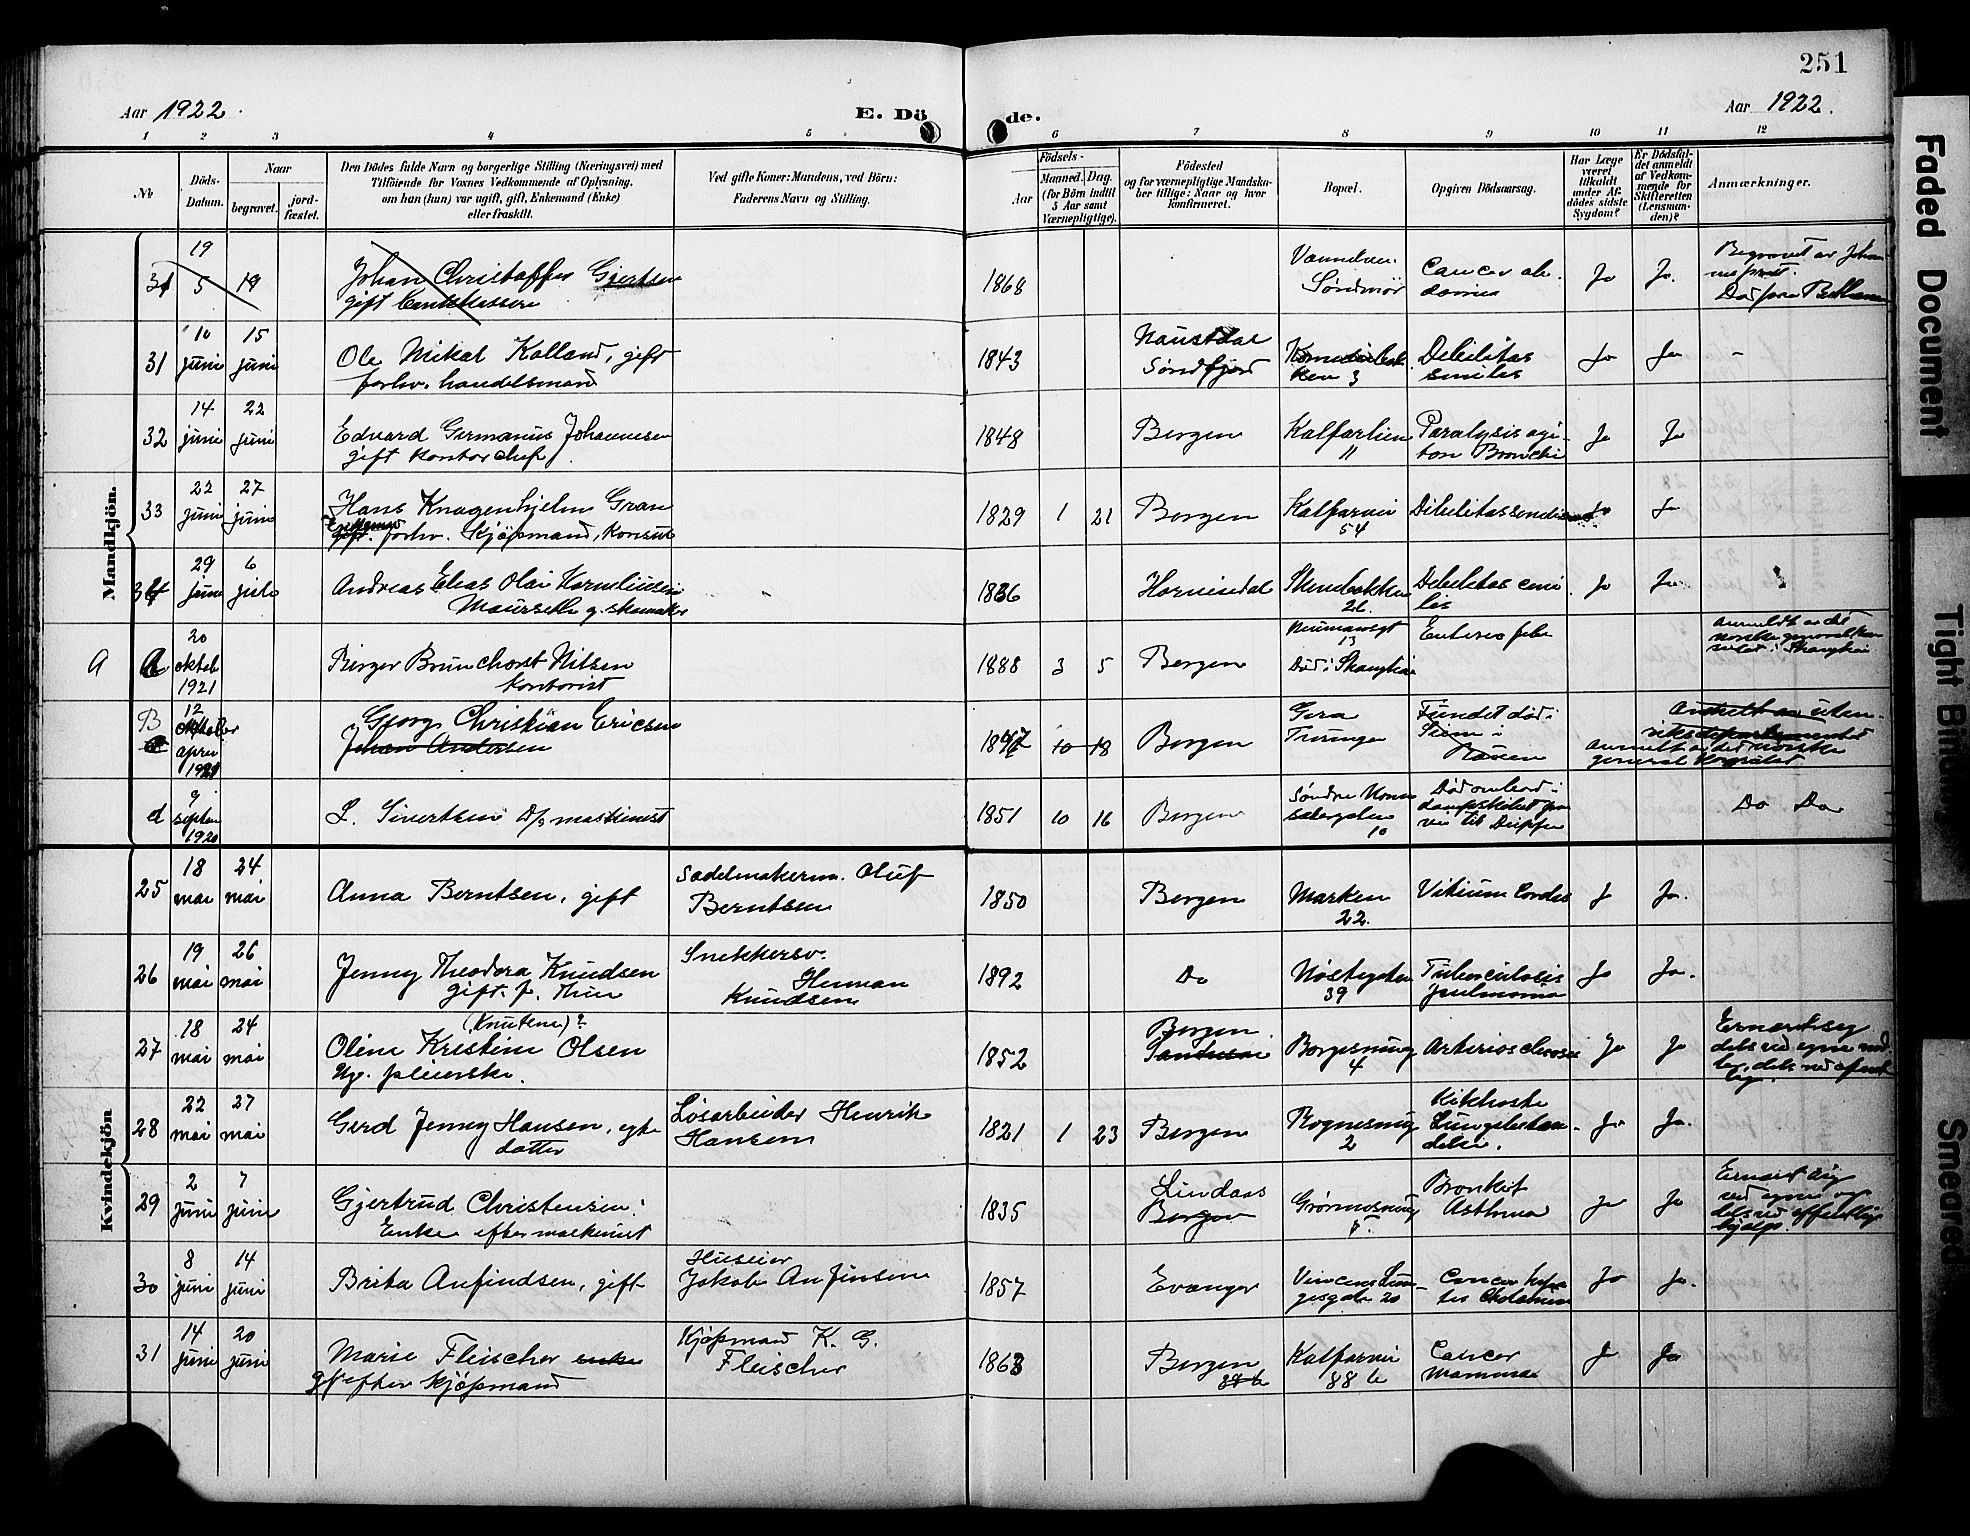 251
Aar 1922.
E. Dö
de.
Aar 1922.
1 2 3 4 5 6 7 8 9 10 11 12
No
Döds-
Datum.
Naar
begravet.
jord-
fæstet.
Den Dödes fulde Navn og borgerlige Stilling (Næringsvei) med
Tilföiende for Voxnes Vedkommende af Oplysning,
om han (hun) var ugift, gift, Enkemand (Enke)
eller fraskilt.
Ved gifte Koner: Mandens, ved Börn:
Faderens Navn og Stilling.
Födsels-
Aar
Maaned. Dag.
(for Börn indtil
5 Aar samt
Værnepligtige).
Födested
og for værnepligtige Mandska-
ber tillige: Naar og hvor
konfirmeret.
Bopæl.
Opgiven Dödsaarsag.
Har Læge
været
tilkaldt
under Af-
dödes sidste
Sygdom?
Er Dödsfal-
det anmeldt
af Vedkom-
mende for
Skifteretten
(Lensman-
den)?
Anmærkninger.
Mandkjön.
31 19 5 19 Johan Christoffer Gjertsen
gift
1868 Søndmør Cancer Ja Ja.
31 10 juni 15 juni Ole Mikal Kolland, gift
forhv. handelsmand
1843 Naustdal
Søndfjord 3 Debilitas
senilis Ja Ja -
32 14 juni 22 juni Edvard Germanus Johannesen
gift kontorchef
1848 Bergen Kalfarlien
11 Paralysis agi-
tans Bronchi Ja Ja
33 22 juni 27 juni Hans Knagenhjelm Gran
gift. forhv. Kjøpmand, Konsul
1829 1 21 Bergen Kalfarvei
54 Debilitas Ja Ja
34 29 juni 6 juli Andreas Elias Olai Korneliusen
Maurseth g. skomaker
1836 Hornindal Stenebakken Debilitas seni
lis Ja Ja
A 20 oktob 1921 Birger Brunchorst Nilsen
kontorist
1888 3 5 Bergen Neumannsgt
13
Død i Shanghai anmeldt av det
norske generalkon
sulat i Shanghai
B 12 oktober april Georg Christian Ericsen
Johan Andersen
10 18 Bergen Fundet død i
anmeldt av det norske
general
d 9 septem 1920 L. Sivertsen D/s maskinist
1851 10 16 Bergen Død ombord i
dampskibet paa
vei til Dieppe Do Do
Kvindekjön
25 18 mai 24 mai Anna Berntsen, gift
Sadelmakerm. Oluf
Berntsen
1850 Bergen Marken
22. Vitium Cordis J Ja.
26 19 mai 26 mai Jenny Theodora Knudsen
gift. f. Thue
Snekkersv.
Herman
Knudsen
1892 Do Nøstegaten
39 Tuberculosis
pulmonia Ja Ja.
27 18 mai 24 mai (Knutsen)?
Oline Kristine Olsen
Ug. pleierske.
1852 Bergen
4 Arteriosclerose Ja Ja Ernært sig
dels ved egne mid.
28 22 mai 27 mai Gerd Jenny Hansen, egte
datter
Løsarbeider Henrik
Hansen
1821 1 23 Bergen Rognesmug
2 Kikhoste
Lungebetæn-
delse. Ja Ja.
29 2 juni 7 juni Gjertrud Christensen,
Enke efter maskinist
1835 Lindaas
Bergen Bronkit
Asthma Ja Ja Ernært sig
ved egne og
dels ved offentlig
hjælp.
30 8 juni 14 juni Brita Anfindsen, gift
Huseier
Jakob Anfinsen
1857 Evanger Vincens Lun-
gesgate 20 Cancer hepa
tis Ja Ja.
31 14 juni 20 juni Marie Fleischer enke
gift efter kjøpmand
Kjøpmand K. G.
Fleischer
1863 Bergen
88 b Kalfarvei
88 b Cancer
mammae J Ja
Faded Document
Tight Binding
Smeared